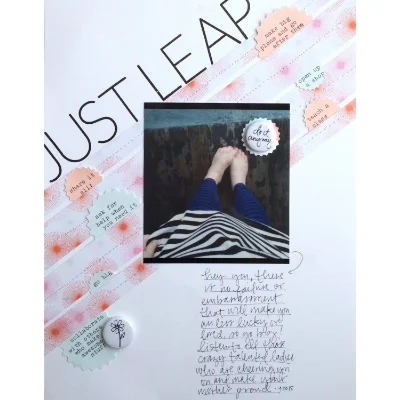 JUST LEAP
make big
plans and go
after them
open up
a shop
teach a
class
do it
anyway
share it
all!
ask for
help when
you need it
go big
collaborate
with others
who make
awesome
stuff
hey you, there
is no failure or
embarrassment
that will make you
an less lucky or
loved, so go baby!
listen to all those
crazy talented ladies
who are cheering you
on and make your
mother proud. 2015